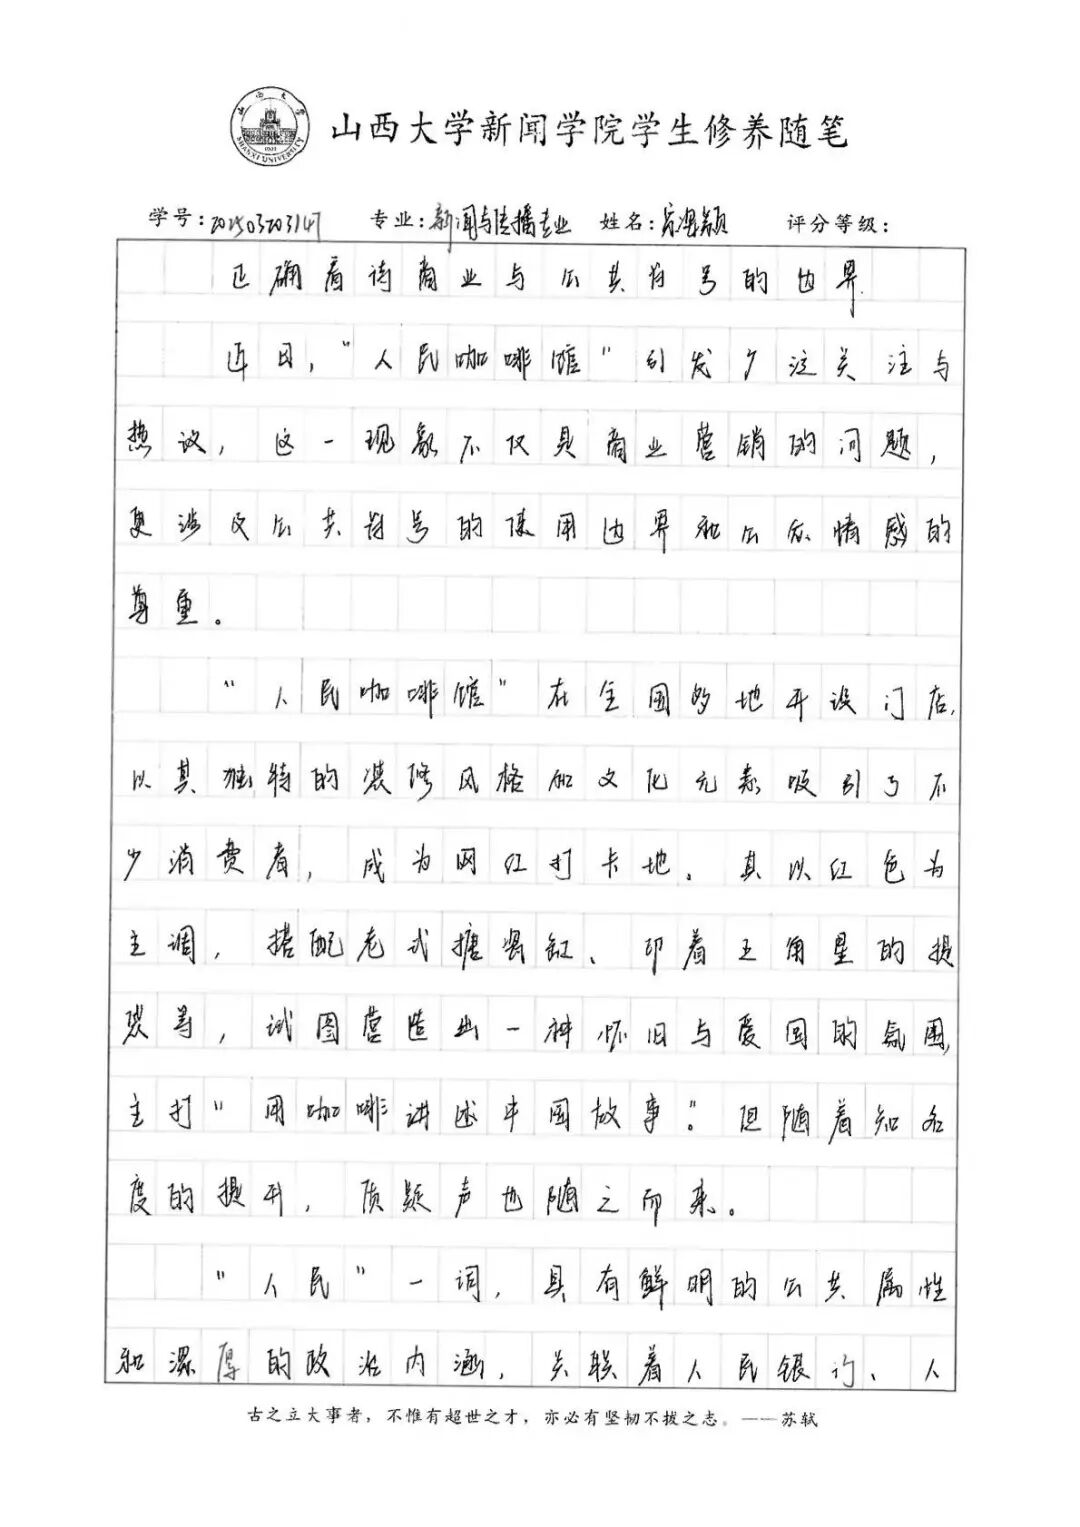 山西大学
SHANXI UNIVERSITY
1902
山西大学新闻学院学生修养随笔
学号：202503203147 专业：新闻与传播专业 姓名： 评分等级：
正确看待商业与公共符号的边界
近日，“人民咖啡馆”引发广泛关注与
热议，这一现象不仅是商业营销的问题，
更涉及公共符号的使用边界和公众情感的
尊重。
“人民咖啡馆”在全国多地开设门店，
以其独特的装修风格和文化元素吸引了不
少消费者，成为网红打卡地。其以红色为
主调，搭配老式搪瓷缸、印着五角星的提
袋等，试图营造出一种怀旧与爱国的氛围，
主打“用咖啡讲述中国故事”。但随着知名
度的提升，质疑声也随之而来。
“人民”一词，具有鲜明的公共属性
和深厚的政治内涵，关联着人民银行、人
古之立大事者，不惟有超世之才，亦必有坚韧不拔之志。——苏轼